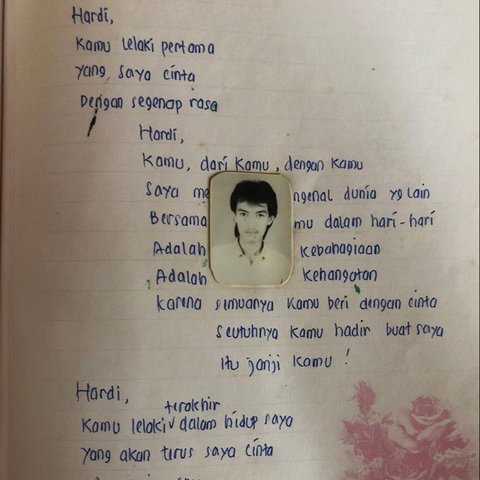 Hardi,
Kamu lelaki pertama
yang saya cinta
Dengan segenap rasa
Hardi,
Kamu, dari kamu, dengan kamu
Saya me ngenal dunia yg lain
Bersama mu dalam hari-hari
Adalah kebahagiaan
Adalah kehangatan
karena semuanya kamu beri dengan cinta
Seutuhnya kamu hadir buat saya
Itu janji kamu !
Hardi,
terakhir
Kamu lelaki v dalam hidup saya
yang akan terus saya cinta